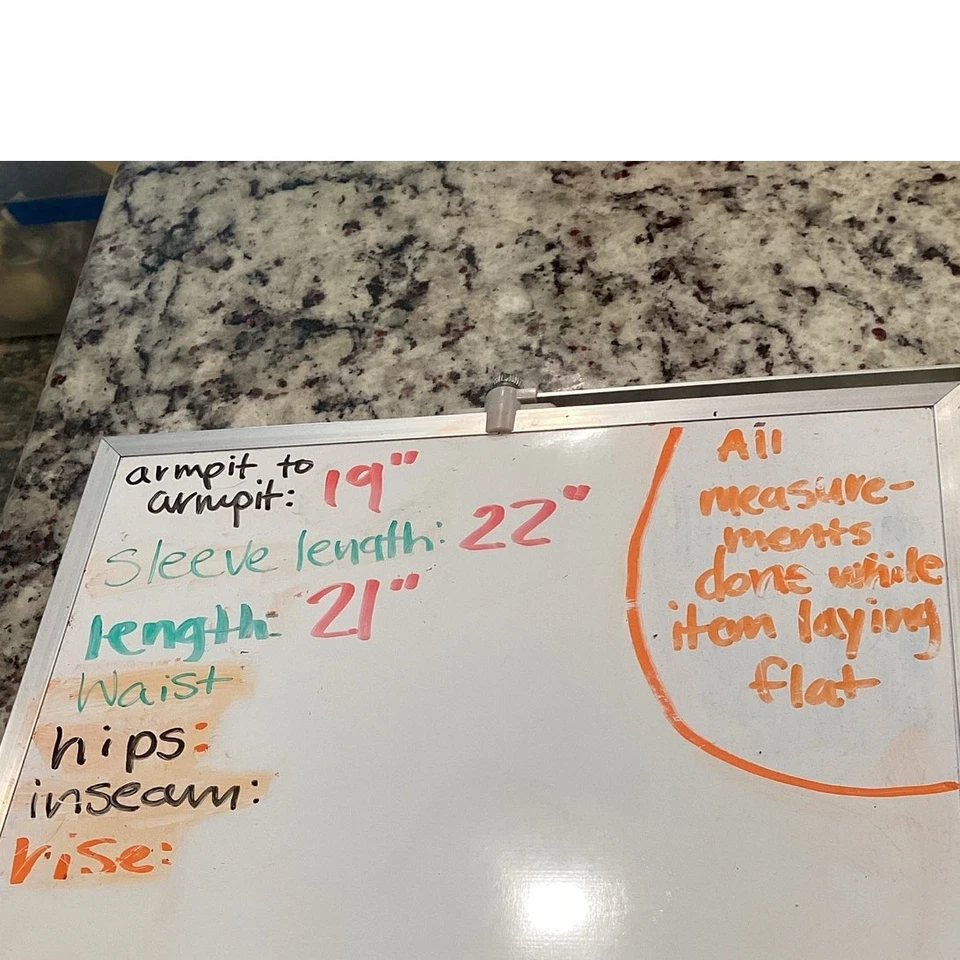 armpit to
armpit: 19"
sleeve length: 22"
length: 21"
Waist
hips:
inseam:
rise:
All
measure-
ments
done while
item laying
flat